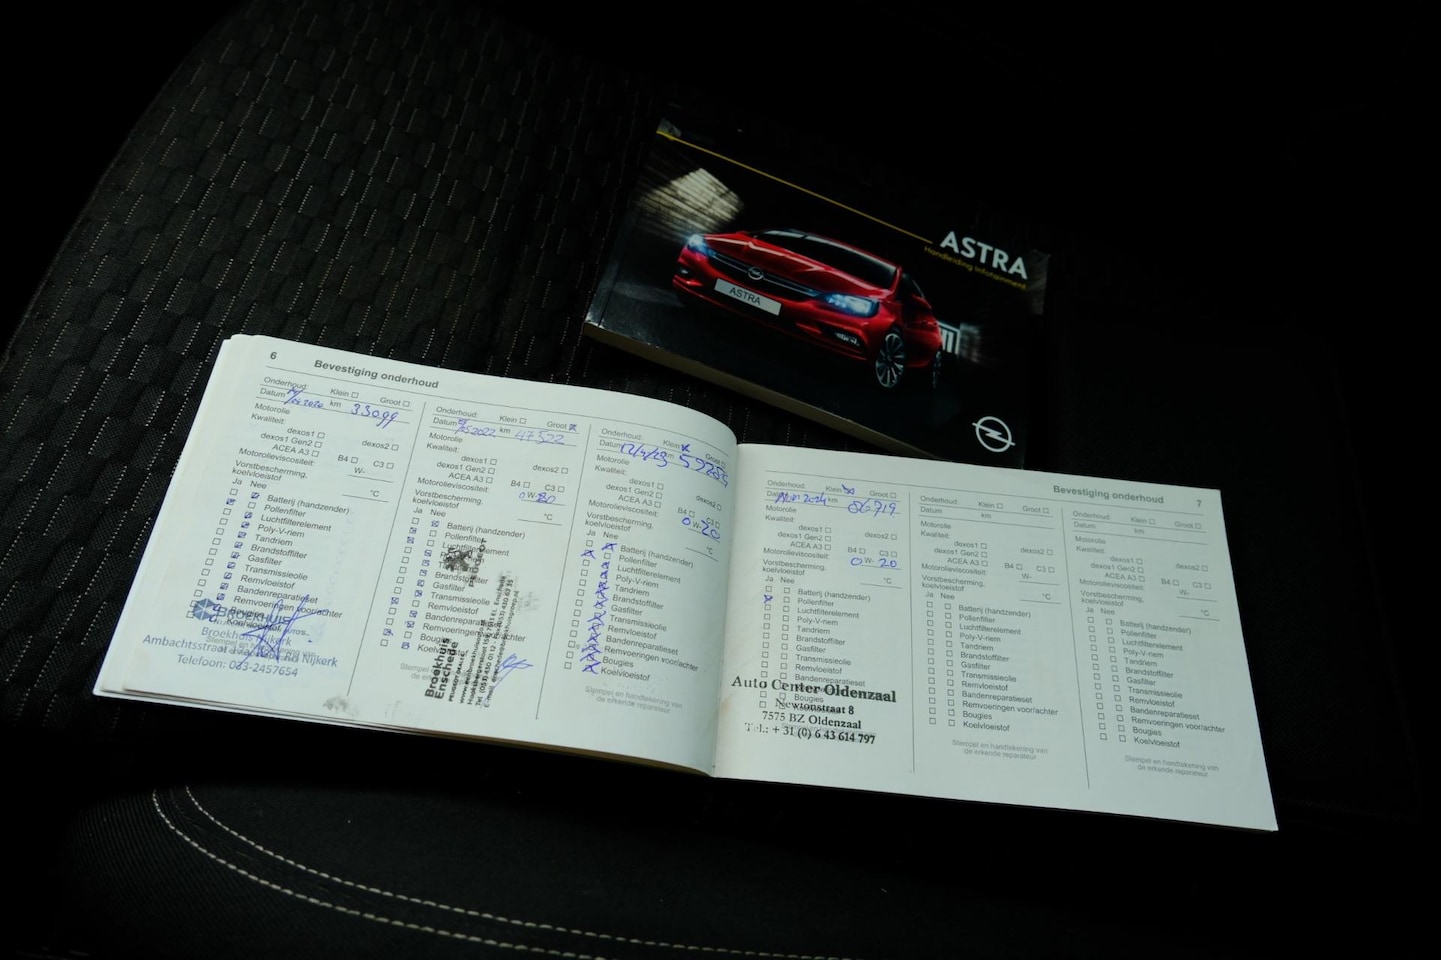 ASTRA
Handleiding Infotainment
ASTRA
6 Bevestiging onderhoud
Onderhoud: Klein Groot
Datum 2020 km 33099
Motorolie
Kwaliteit:
dexos1 dexos2
dexos1 Gen2
ACEA A3 B4 C3
Motorolieviscositeit: W-
Vorstbescherming,
koelvloeistof °C
Ja Nee
Batterij (handzender)
Pollenfilter
Luchtfilterelement
Poly-V-riem
Tandriem
Brandstoffilter
Gasfilter
Transmissieolie
Remvloeistof
Bandenreparatieset
Remvoeringen voor/achter
Bougies
Koelvloeistof
BROEKHUIS
Broekhuis Nijkerk
Ambachtsstraat Nijkerk
Telefoon: 033-2457654
Onderhoud: Klein Groot
Datum 2022 km 47522
Motorolie
Kwaliteit:
dexos1 dexos2
dexos1 Gen2
ACEA A3 B4 C3
Motorolieviscositeit: 0 W-20
Vorstbescherming,
koelvloeistof °C
Ja Nee
Batterij (handzender)
Pollenfilter
Luchtfilterelement
Brandstoffilter
Gasfilter
Transmissieolie
Remvloeistof
Bandenreparatieset
Remvoeringen voor/achter
Bougies
Koelvloeistof
Broekhuis
Enschede
Onderhoud: Klein Groot
Datum km 59285
Motorolie
Kwaliteit:
dexos1 dexos2
dexos1 Gen2
ACEA A3 B4 C3
Motorolieviscositeit: 0 W-20
Vorstbescherming,
koelvloeistof °C
Ja Nee
Batterij (handzender)
Pollenfilter
Luchtfilterelement
Poly-V-riem
Tandriem
Brandstoffilter
Gasfilter
Transmissieolie
Remvloeistof
Bandenreparatieset
Remvoeringen voor/achter
Bougies
Koelvloeistof
Stempel en handtekening van
de erkende reparateur
Bevestiging onderhoud 7
Onderhoud: Klein Groot
Datum 2024 km 86719
Motorolie
Kwaliteit:
dexos1 dexos2
dexos1 Gen2
ACEA A3 B4 C3
Motorolieviscositeit: 0 W-20
Vorstbescherming,
koelvloeistof °C
Ja Nee
Batterij (handzender)
Pollenfilter
Luchtfilterelement
Poly-V-riem
Tandriem
Brandstoffilter
Gasfilter
Transmissieolie
Remvloeistof
Bandenreparatieset
Remvoeringen voor/achter
Bougies
Auto Center Oldenzaal
Newtonstraat 8
7575 BZ Oldenzaal
Tel.: + 31 (0) 6 43 614 797
Onderhoud: Klein Groot
Datum km
Motorolie
Kwaliteit:
dexos1 dexos2
dexos1 Gen2
ACEA A3 B4 C3
Motorolieviscositeit: W-
Vorstbescherming,
koelvloeistof °C
Ja Nee
Batterij (handzender)
Pollenfilter
Luchtfilterelement
Poly-V-riem
Tandriem
Brandstoffilter
Gasfilter
Transmissieolie
Remvloeistof
Bandenreparatieset
Remvoeringen voor/achter
Bougies
Koelvloeistof
Stempel en handtekening van
de erkende reparateur
Onderhoud: Klein Groot
Datum km
Motorolie
Kwaliteit:
dexos1 dexos2
dexos1 Gen2
ACEA A3 B4 C3
Motorolieviscositeit: W-
Vorstbescherming,
koelvloeistof °C
Ja Nee
Batterij (handzender)
Pollenfilter
Luchtfilterelement
Poly-V-riem
Tandriem
Brandstoffilter
Gasfilter
Transmissieolie
Remvloeistof
Bandenreparatieset
Remvoeringen voor/achter
Bougies
Koelvloeistof
Stempel en handtekening van
de erkende reparateur